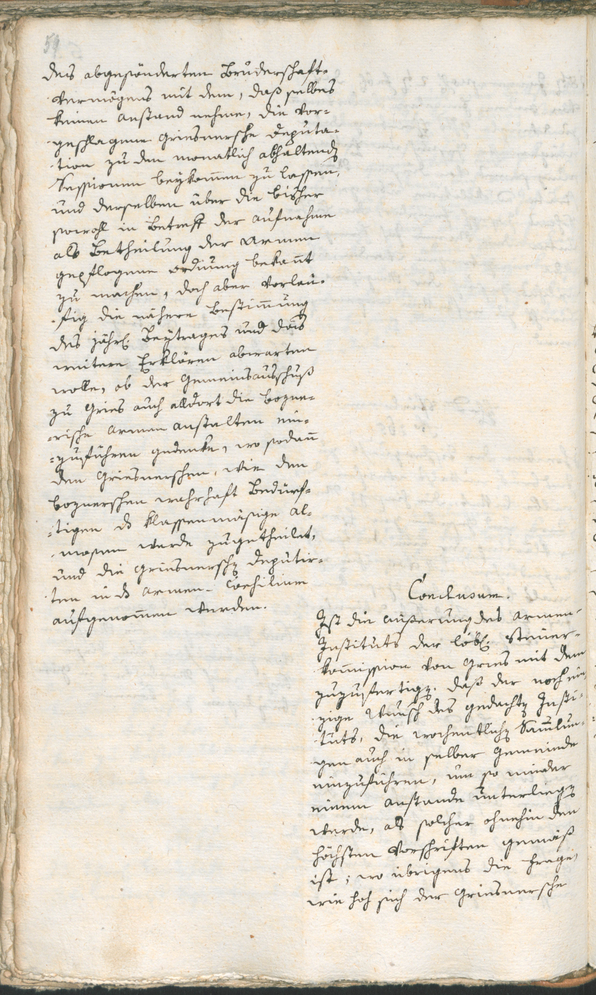 des abgesönderten Bruderschaft-
Vermögens mit dem, daß selbes
keinen Anstand nehme, die vor-
geschlagene Griesnersche Deputa-
tion zu den monatlich abhaltende
Sessionen beykomen zu lassen,
und derselben über die bisher
sowohl in Betreff der Aufnahme
als Betheilung der Armen
gepflogene Ordnung bekannt
zu machen, doch aber vorläu-
fig die nähere Bestimung
des jährl Beytrages und das
weitere Erklären abwarten
wolle, ob der Gemeindsausschuß
zu Gries auch alldort die bozne-
rische Armenanstalten ein-
zuführen gedenke, wo sodann
den Griesnerschen, wie den
boznerschen wahrhaft Bedürf-
tigen das klassenmäsige Al-
mosen werde zugetheilt,
und die Griesnersche Deputir-
ten in das Armen-Consilium
aufgenomen werden.
Conclusum
Ist die Äußerung des Armen-
Instituts der löbl Steuer-
kommission von Gries mit dem
zuzufertigen, daß der noch ein-
zige Wunsch des gedachten Insti-
tuts, die wochentliche Samlun-
gen auch in selber Gemeinde
einzuführen, um so minder
einem Anstande unterliegen
werde, als solcher ohnehin den
höchsten Vorschriften gemäß
ist; wo übrigens die Frage,
wie hoch sich der Griesnersche